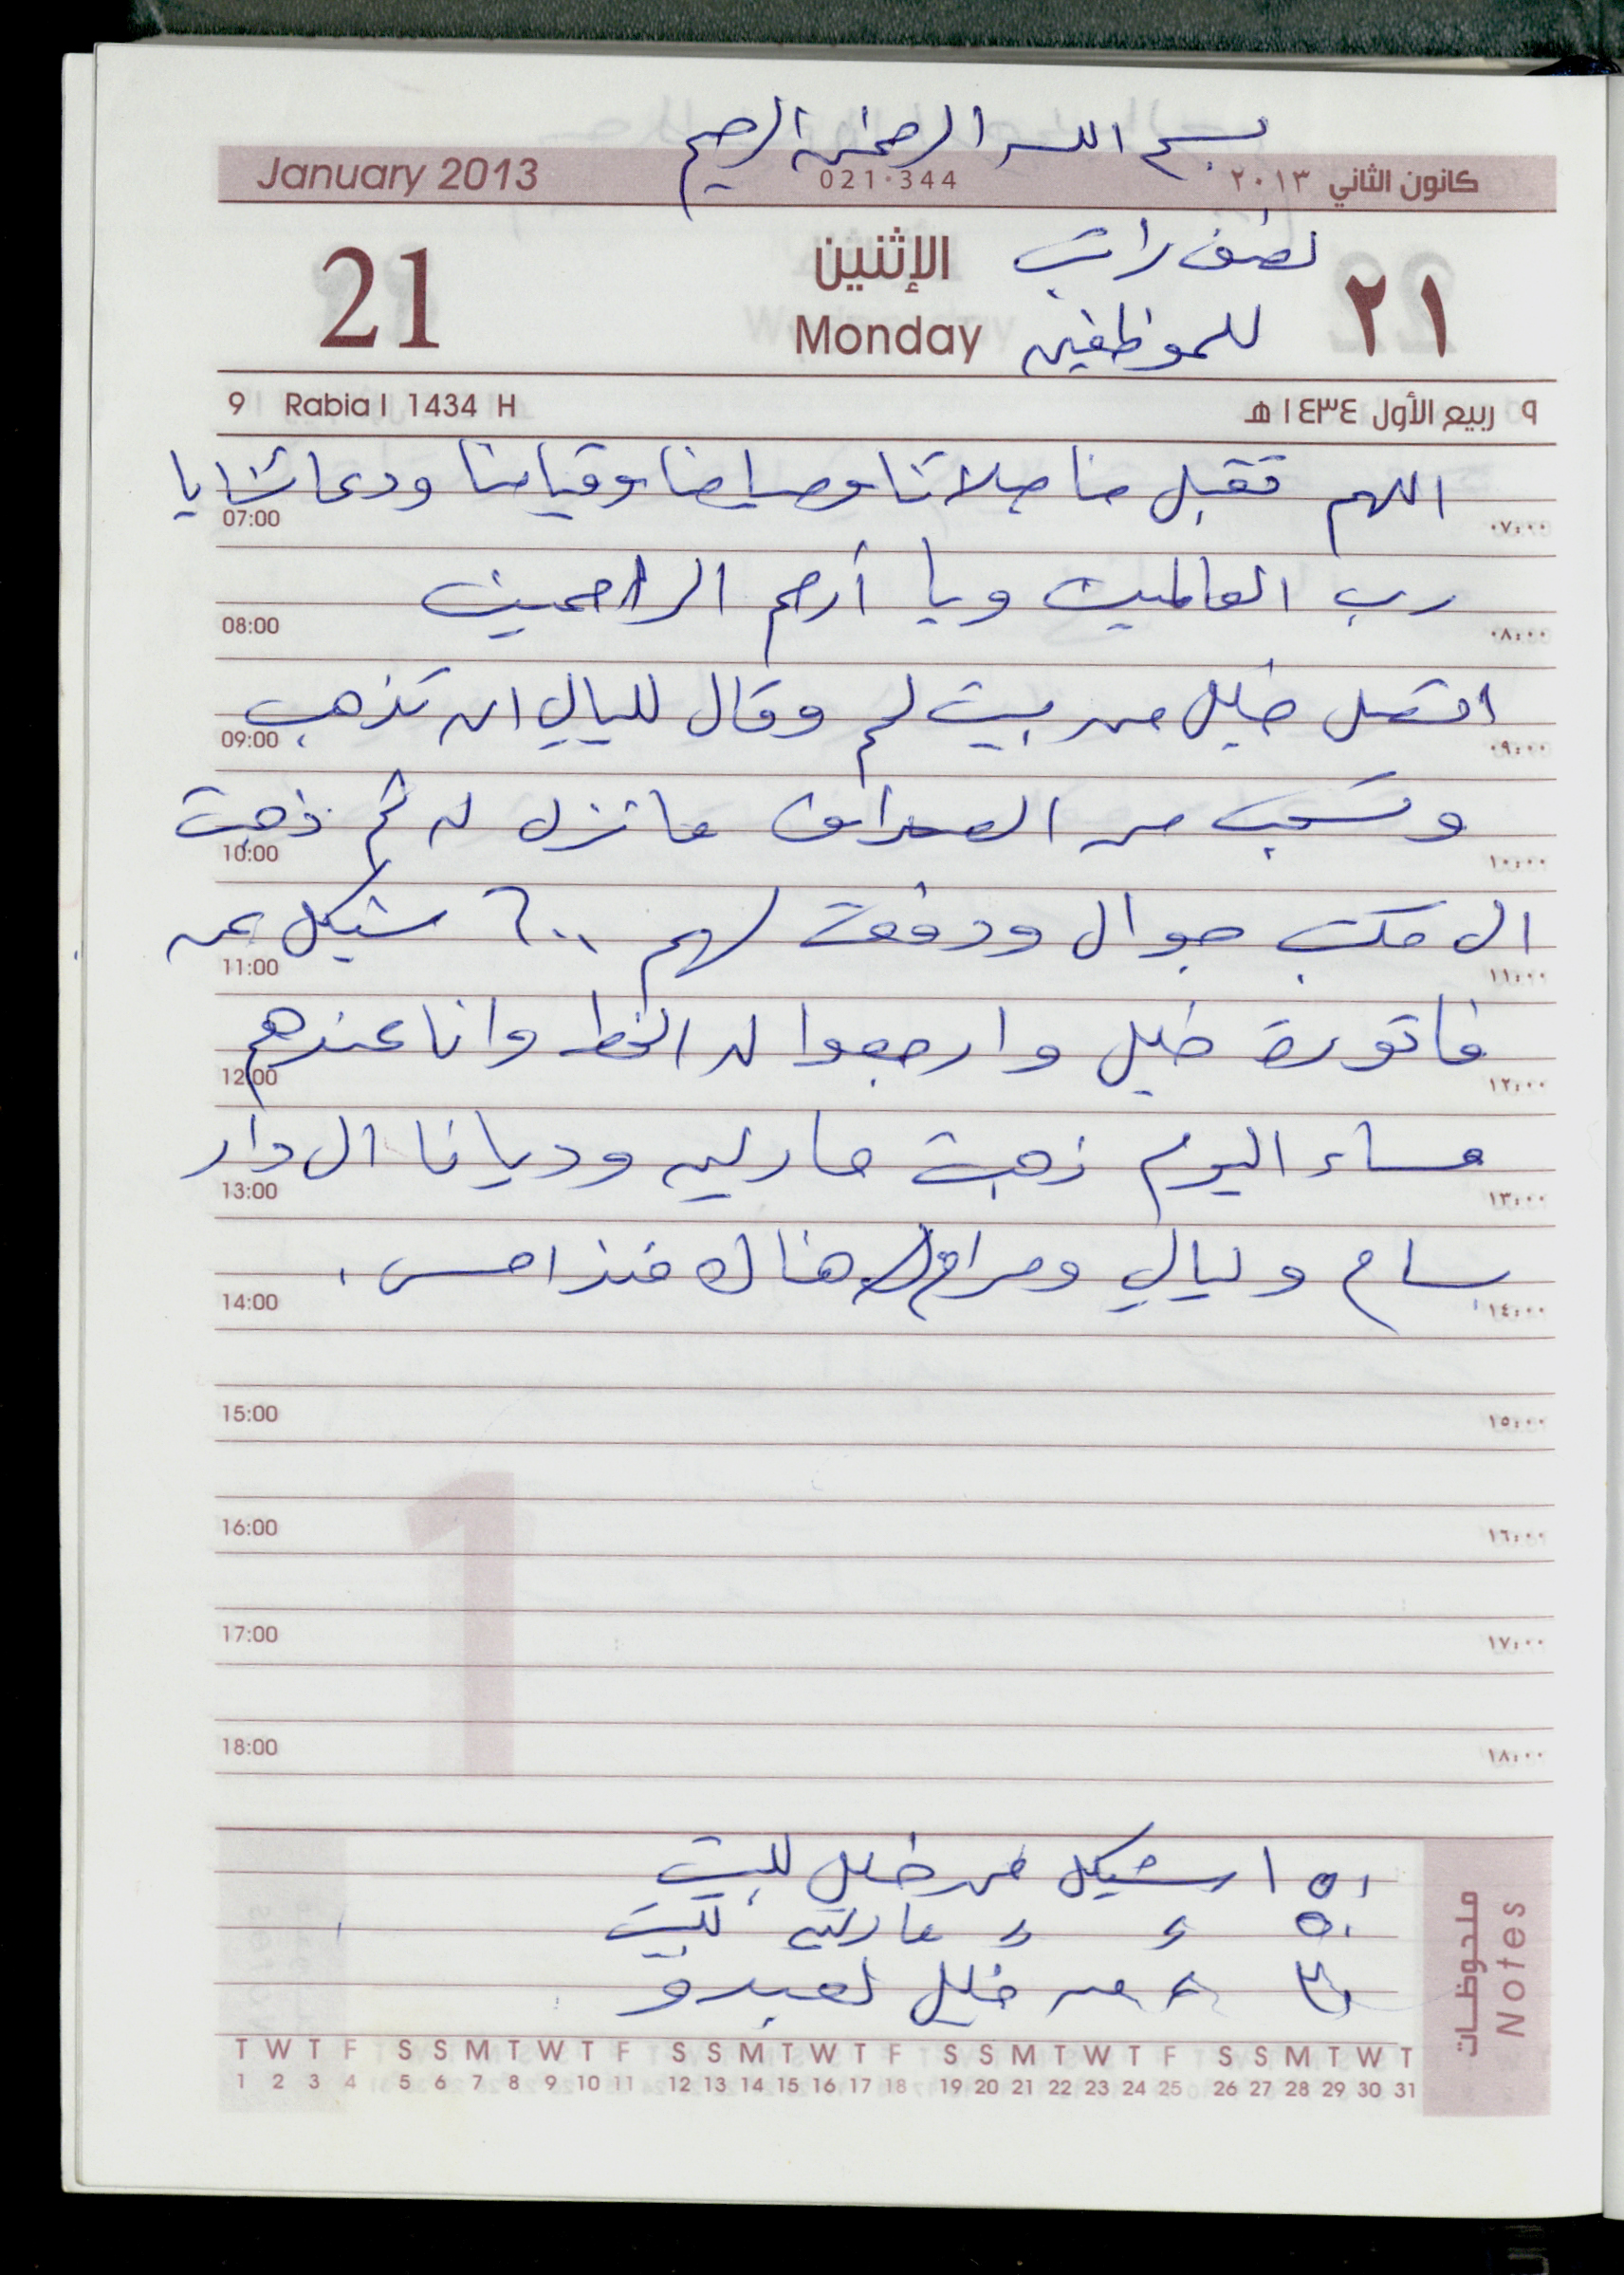 بسم الله الرحمن الرحيم
January 2013 021·344 كانون الثاني ٢٠١٣
نصف راتب
21 الإثنين ٢١
Monday للموظفين
9 Rabia I 1434 H ٩ ربيع الأول ١٤٣٤ هـ
اللهم تقبل منا صلاتنا وصيامنا وقيامنا ودعائنا يا
07:00 ٠٧:٠٠
رب العالمين ويا أرحم الراحمين
08:00 ٠٨:٠٠
اتصل خليل من بيت لحم وقال لليالي ان تذهب
09:00 ٠٩:٠٠
وتسحب من الصراف ما نزل له ثم ذهبت
10:00 ١٠:٠٠
الى مكتب جوال ودفعت لهم ٦٠٠ شيكل عن
11:00 ١١:٠٠
فاتورة خليل وارجعوا له الخط وانا عندهم
12:00 ١٢:٠٠
مساء اليوم ذهبت مارلين وديانا الى دار
13:00 ١٣:٠٠
بسام وليالي ومرام هناك منذ امس .
14:00 ١٤:٠٠
15:00 ١٥:٠٠
16:00 ١٦:٠٠
17:00 ١٧:٠٠
18:00 ١٨:٠٠
شيكل من خليل للبيت
٥٠ مارلين للبيت
من خليل لعبدو
ملحوظات Notes
T W T F S S M T W T F S S M T W T F S S M T W T F S S M T W T
1 2 3 4 5 6 7 8 9 10 11 12 13 14 15 16 17 18 19 20 21 22 23 24 25 26 27 28 29 30 31